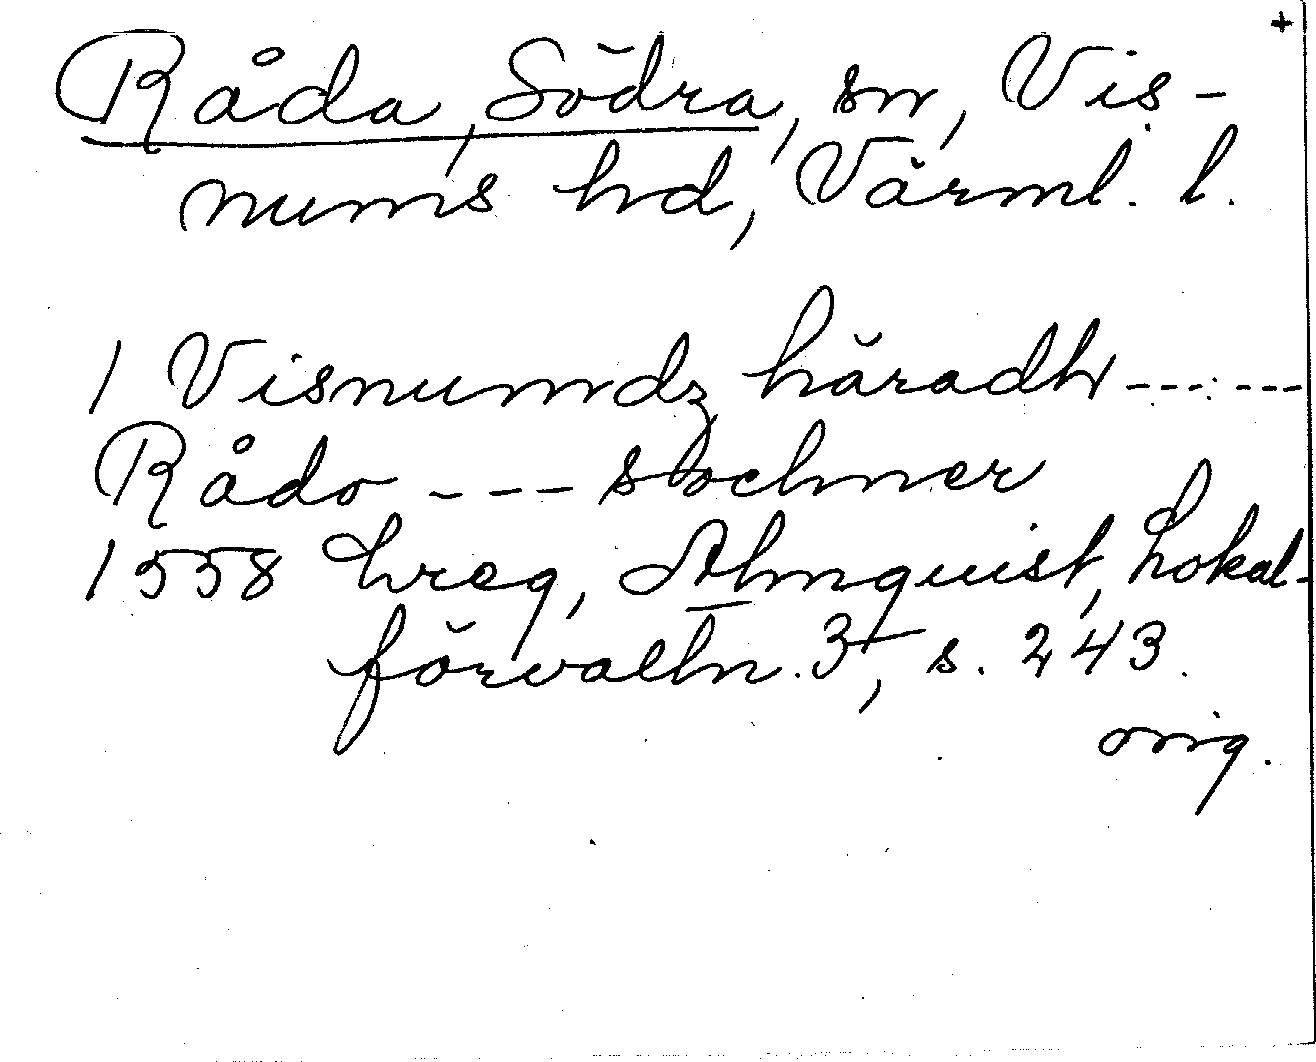 +
Råda, Södra, sn, Vis-
nums hd, Värml. l.
I Visnumdz häradh --- ---
Rådo --- sochner
1558 Lreg, Almquist, Lokal-
förvaltn. 3, s. 243.
orig.